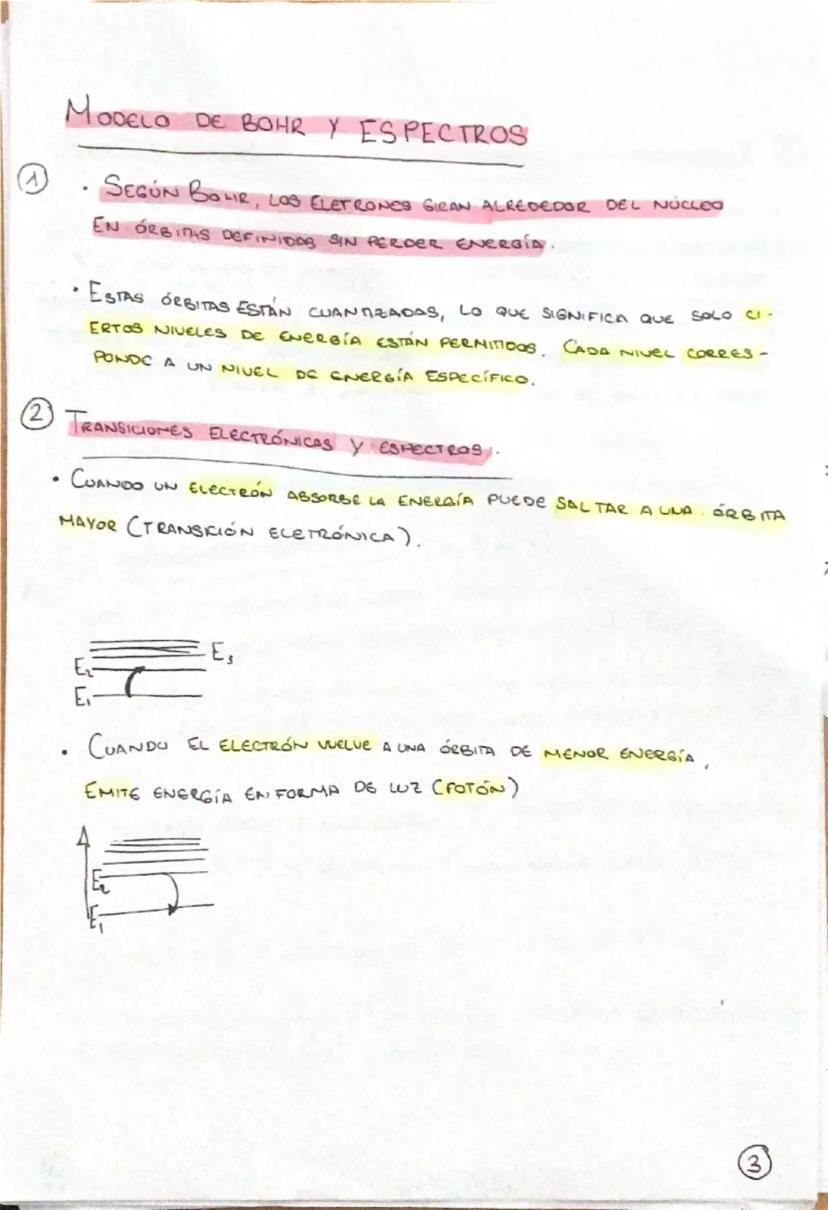 MODELO DE BOHR Y ESPECTROS
1
• SEGÚN BOHR, LOS ELETRONES GIRAN ALREDEDOR DEL NÚCLEO
EN ÓRBITAS DEFINIDAS SIN PERDER ENERGÍA.
• ESTAS ÓRBITAS ESTÁN CUANTIZADAS, LO QUE SIGNIFICA QUE SOLO CI-
ERTOS NIVELES DE ENERGÍA ESTÁN PERMITIDOS. CADA NIVEL CORRES-
PONDE A UN NIVEL DE ENERGÍA ESPECÍFICO.
2 TRANSICIONES ELECTRÓNICAS Y ESPECTROS.
• CUANDO UN ELECTRÓN ABSORBE LA ENERGÍA PUEDE SALTAR A UNA ÓRBITA
MAYOR (TRANSICIÓN ELETRÓNICA).
E3
E2
E1
• CUANDO EL ELECTRÓN VUELVE A UNA ÓRBITA DE MENOR ENERGÍA,
EMITE ENERGÍA EN FORMA DE LUZ (FOTÓN)
E2
E1
3